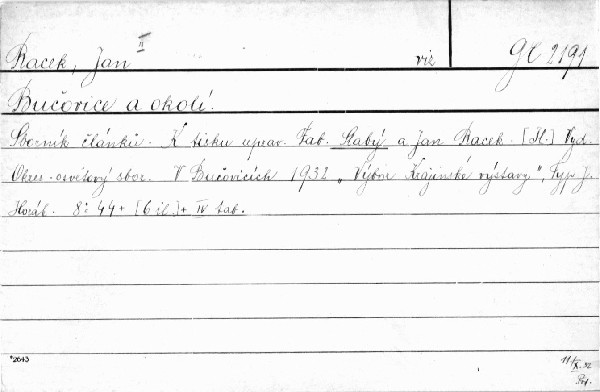 Racek, Jan II viz GC 2191
Bučovice a okolí.
Sborník článků. K tisku uprav. Fab. Slabý a Jan Racek. [Il.] Vyd.
Okres. osvětový sbor. V Bučovicích 1932 "Výbor Krajinské výstavy", Typ J.
Horáb. 8° 44 + [6 il.] + IV tab.
*2643
11/X. 32